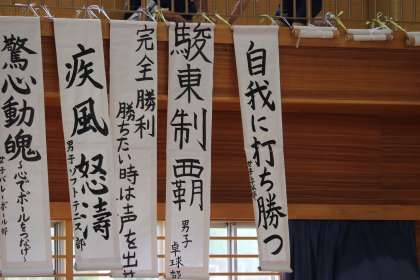 自我に打ち勝つ
駿東制覇
男子
卓球部
完全勝利
勝ちたい時は声を出せ
疾風怒濤
男子ソフトテニス部
驚心動魄
～心でボールをつなげ～
女子バレーボール部